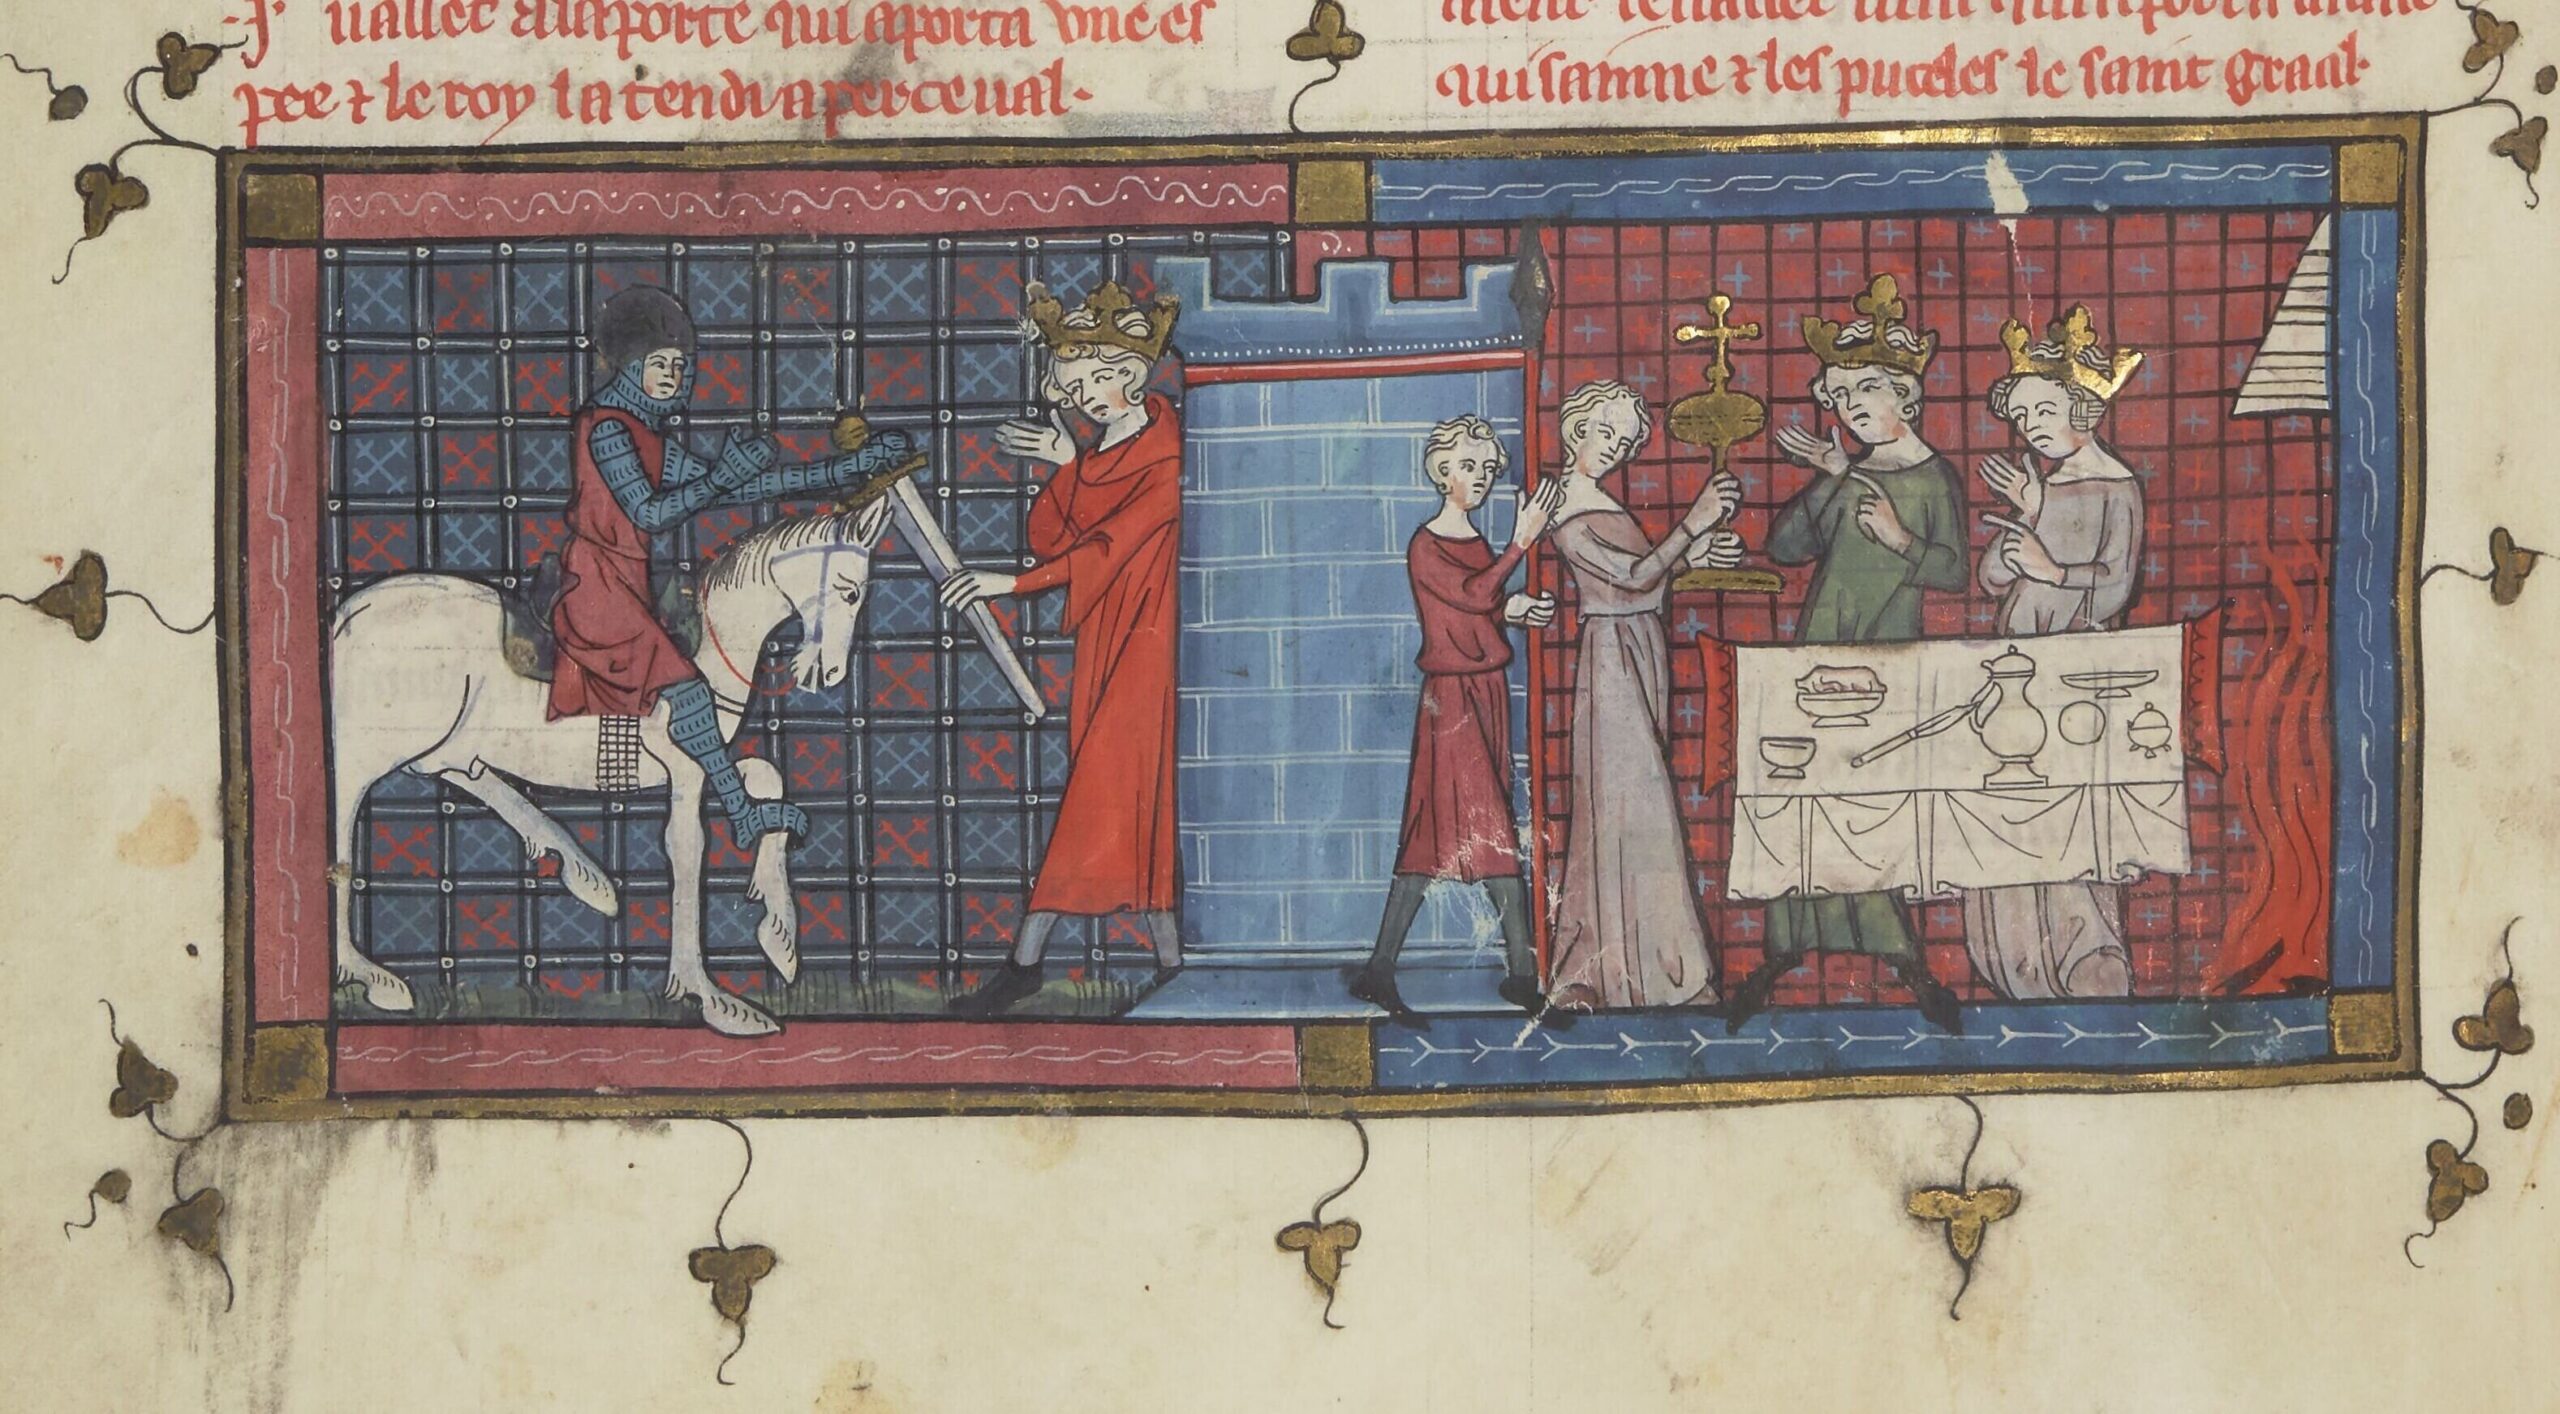 ·J· uallet a la porte qui aporta une es
pee ⁊ le roy la tendi a perceual·
qui sainne ⁊ les puceles le saint graal·